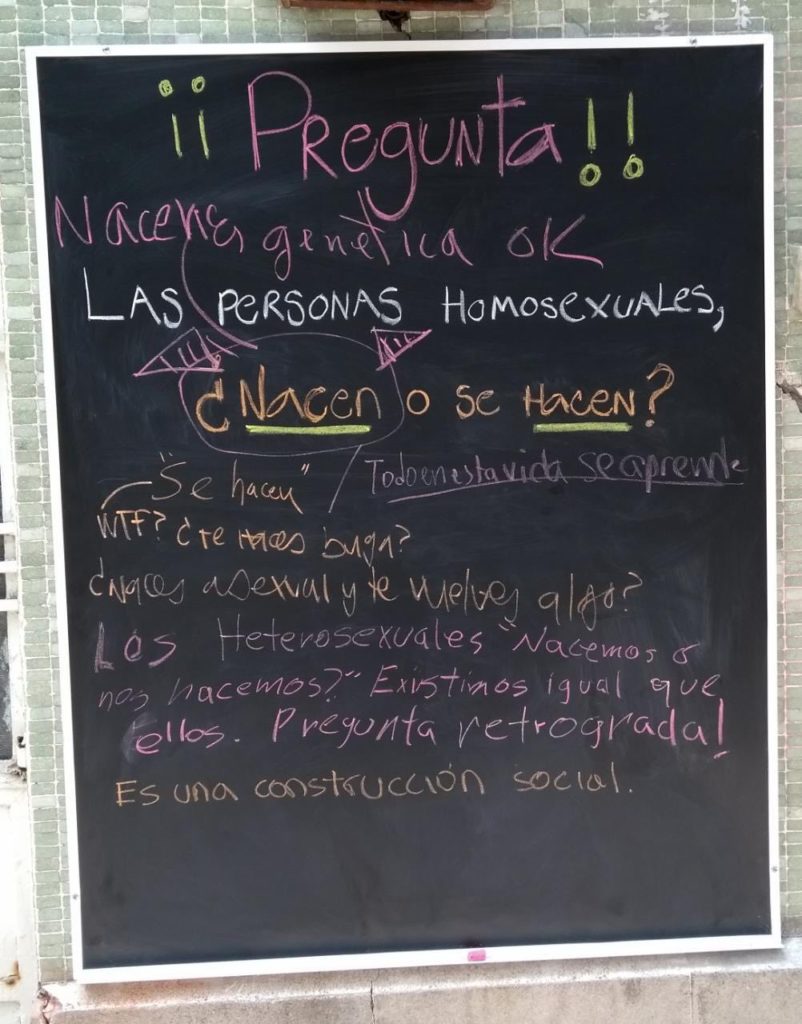 ¡¡ Pregunta !!
Nacen es genética OK
LAS PERSONAS HOMOSEXUALES,
¿Nacen o se HACEN?
"Se hacen"
Todo en esta vida se aprende
WTF? ¿Te Haces buga?
¿Naces asexual y te vuelves algo?
Los Heterosexuales "Nacemos o
nos hacemos?" Existimos igual que
ellos. Pregunta retrograda!
Es una construcción social.